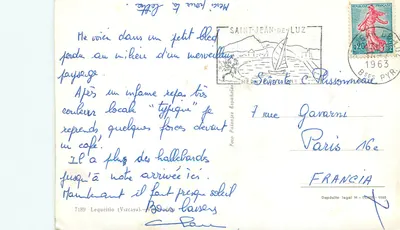 Merci pour ta lettre.
Me voici dans un petit bled
perdu au milieu d'un merveilleux
paysage.
Après un infame repas très
couleur locale "typique" je
reprends quelques forces devant
un café.
Il a plu des hallebardes
jusqu'à notre arrivée ici.
Maintenant il fait presque soleil
Bons baisers
SAINT-JEAN-DE-LUZ
1963
Bses PYR.
0,20
Señorita C. Plissonneau
7 rue Gavarni
Paris 16e
FRANCIA
7189 Lequeitio (Vizcaya)
Depósito legal